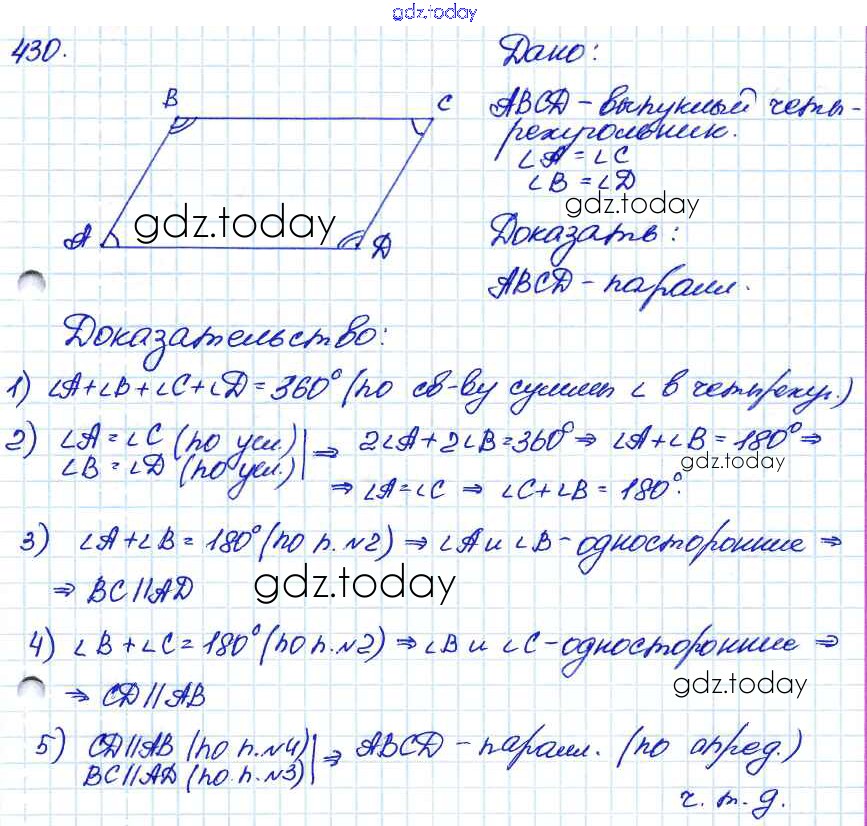 gdz.today
430.
Дано:
B
C
ABCD – выпуклый четы-
рехугольник.
∠A = ∠C
∠B = ∠D
gdz.today
gdz.today
A
D
Доказать:
ABCD – паралл.
Доказательство:
1) ∠A+∠B+∠C+∠D=360° (по св-ву суммы ∠ в четырехуг.)
2) ∠A=∠C (по усл.) | ⇒ 2∠A+2∠B=360° ⇒ ∠A+∠B=180° ⇒
∠B=∠D (по усл.) | ⇒ ∠A=∠C ⇒ ∠C+∠B=180°.
gdz.today
3) ∠A+∠B=180° (по п.№2) ⇒ ∠A и ∠B – односторонние ⇒
⇒ BC∥AD
gdz.today
4) ∠B+∠C=180° (по п.№2) ⇒ ∠B и ∠C – односторонние ⇒
⇒ CD∥AB
gdz.today
5) CD∥AB (по п.№4) | ⇒ ABCD – паралл. (по опред.)
BC∥AD (по п.№3) |
ч.т.д.